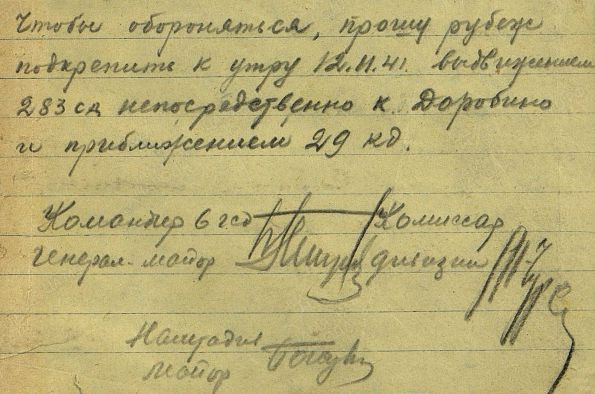 Чтобы обороняться, прошу рубеж
подкрепить к утру 12.11.41. выдвижением
283 сд непосредственно к Доробино
и приближением 29 кд.
Командир 6 гсд Комиссар
генерал-майор дивизии
Наштадив
майор